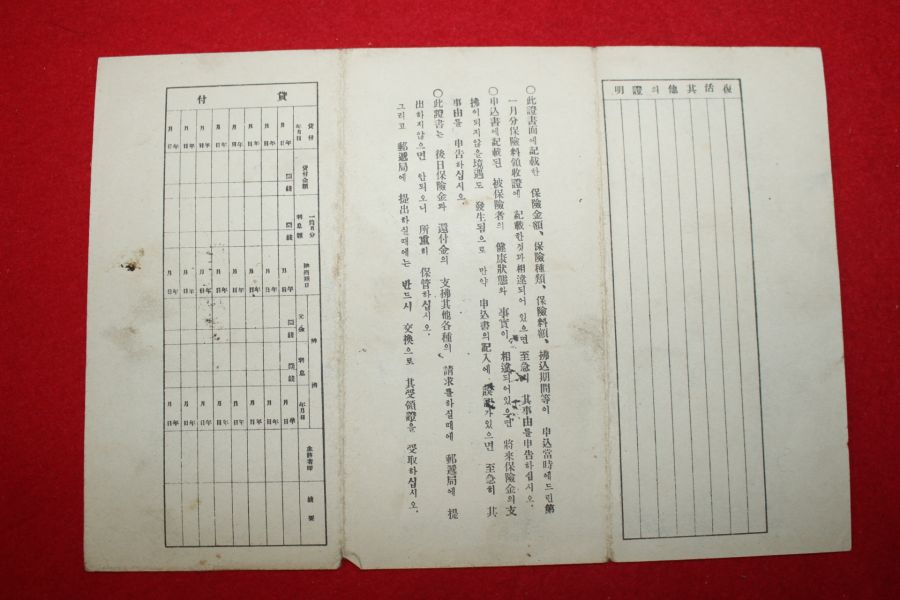 復活其他의證明
○此證書面에記載한 保險金額、保險種類、保險料額、拂込期間等이 申込當時에드린第
一月分保險料領收證에 記載한것과相違되어 있으면 至急히 其事由를申告하십시오.
○申込書에記載된 被保險者의 健康狀態와 事實이 相違되어있으면 將來保險金의支
拂이되지않을境遇도 發生됨으로 만약 申込書의記入에 가있으면 至急히 其
事由를 申告하십시오.
○此證書는 後日保險金과 還付金의 支拂其他各種의 請求를하실때에 郵遞局에 提
出하지않으면 안되오니 所重히 保管하십시오.
그리고 郵遞局에 提出하실때에는 반드시 交換으로 其受領證을 受取하십시오.
貸付
貸付年月日
貸付金額
一個月分利息額
償還期日
辨濟
元金
利息
年月日
主務者印
摘要
年月日 圓錢 圓錢 年月日 圓錢 圓錢 年月日
年月日 年月日 年月日
年月日 年月日 年月日
年月日 年月日 年月日
年月日 年月日 年月日
年月日 年月日 年月日
年月日 年月日 年月日
年月日 年月日 年月日